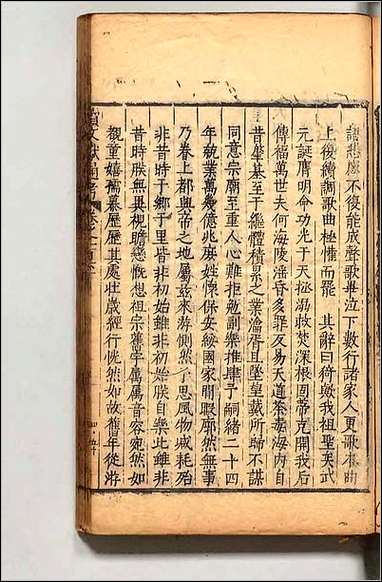 悲感不復能成聲歌畢泣下數行諸家人更歌本曲
上復續調歌曲極懽而罷　其辭曰猗歟我祖聖矣武
元誕膺明命功光于天拯溺救焚深根固蔕克開我后
傳福萬世夫何海陵淫昏多罪反易天道荼毒海內自
昔肇基至于繼體積累之業淪胥且墜望戴所歸不謀
同意宗廟至重人心難拒勉副樂推肆予嗣緒二十四
年兢業萬幾億兆庶姓懷保安綏國家閒暇廓然無事
乃眷上都興帝之地屬茲來游惻然予思風物減耗殆
非昔時于鄉于里皆非初始雖非初始朕自樂此雖非
昔時朕無異視瞻戀慨想祖宗舊宇屬屬音容宛然如
覩童嬉孺慕歷歷其處壯歲經行恍然如故舊年從游
續文獻通考